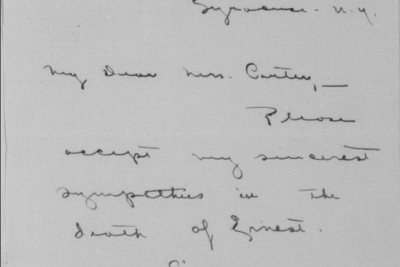 Syracuse - N.Y.
My Dear Mrs. Carter, —
Please
accept my sincerest
sympathies in the
death of Ernest.